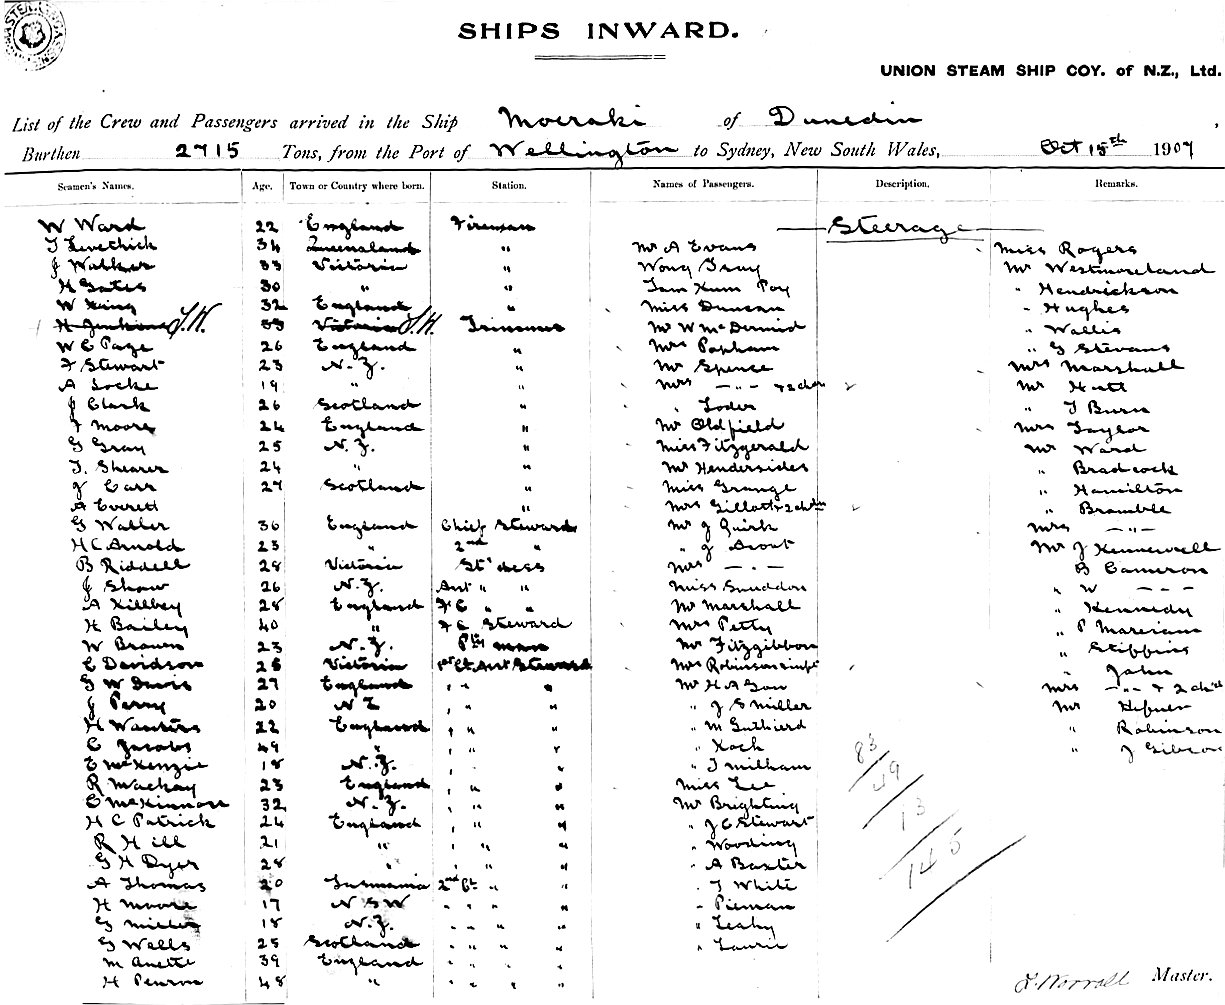 SHIPS INWARD.
UNION STEAM SHIP COY. of N.Z., Ltd.
List of the Crew and Passengers arrived in the Ship Moeraki of Dunedin
Burthen 2715 Tons, from the Port of Wellington to Sydney, New South Wales, Oct 15th 1907
Seamen's Names. Age. Town or Country where born. Station. Names of Passengers. Description. Remarks.
W Ward 22 England Fireman Steerage
34 Queensland " Mr A Evans Miss Rogers
J Walker 33 Victoria " Wong Gray Mr Westmoreland
H Gates 30 " " " Hendrickson
W King 32 England " Miss Duncan " Hughes
H Jenkins 33 Victoria Trimmers Mr W McDermid " Wallis
W E Page 26 England " Mrs Popham " G Stevans
F Stewart 23 N.Z. " Mr Spence Mrs Marshall
A Locke 19 " " Mrs -"- & 2 chdn Mr Hutt
J Clark 26 Scotland " " Loder " T Burn
F Moore 24 England " Mr Oldfield Mrs Taylor
G Gray 25 N.Z. " Miss Fitzgerald Mr Ward
T. Shearer 24 " " Mr Hendersides " Bradcock
J Carr 27 Scotland " Miss Grange " Hamilton
A Everett " Mrs Gillott & 2 chdn " Bramble
G Waller 36 England Chief Steward Mr J Quirk Mrs -"-
H C Arnold 23 " 2nd " " J Mr J
B Riddell 28 Victoria St'dess Mrs -"- B Cameron
J Shaw 26 N.Z. Asst " " Miss Sneddon " W -"-
A Killbey 28 England F C " " Mr Marshall " Kennedy
H Bailey 40 " F C Steward Mrs Petty " P
W Brown 23 N.Z. Pty man Mr Fitzgibbon " Stiffins
E Davidson 25 Victoria 1st Cl. Asst Steward Mrs Robinson & inft " John
G W Davis 27 England " " " Mr H A Gow Mrs -"- & 2 chdn
J Perry 20 N Z " " " " J S Miller Mr
H 22 England " " " " M " Robinson
C Jacobs 49 " " " " " Koch " J Gibson
E McKenzie 18 N.Z. " " " " T Milham
R Mackay 23 England " " " Miss Lee
E McKinnon 32 N.Z. " " " Mr Brighting
H C Patrick 24 England " " " " J C Stewart
R Hill 21 " " " " " Wooding
G H Dyer 28 " " " " " A Baxter
A Thomas 20 Tasmania 2nd Cl. " " " T White
H Moore 17 N S W " " " " Pieman
G Miller 18 N.Z. " " " " Leahy
G Wells 25 Scotland " " " " Laurie
M 39 England " " "
H Penson 48 " " " "
83
49
13
145
L. Worrall Master.